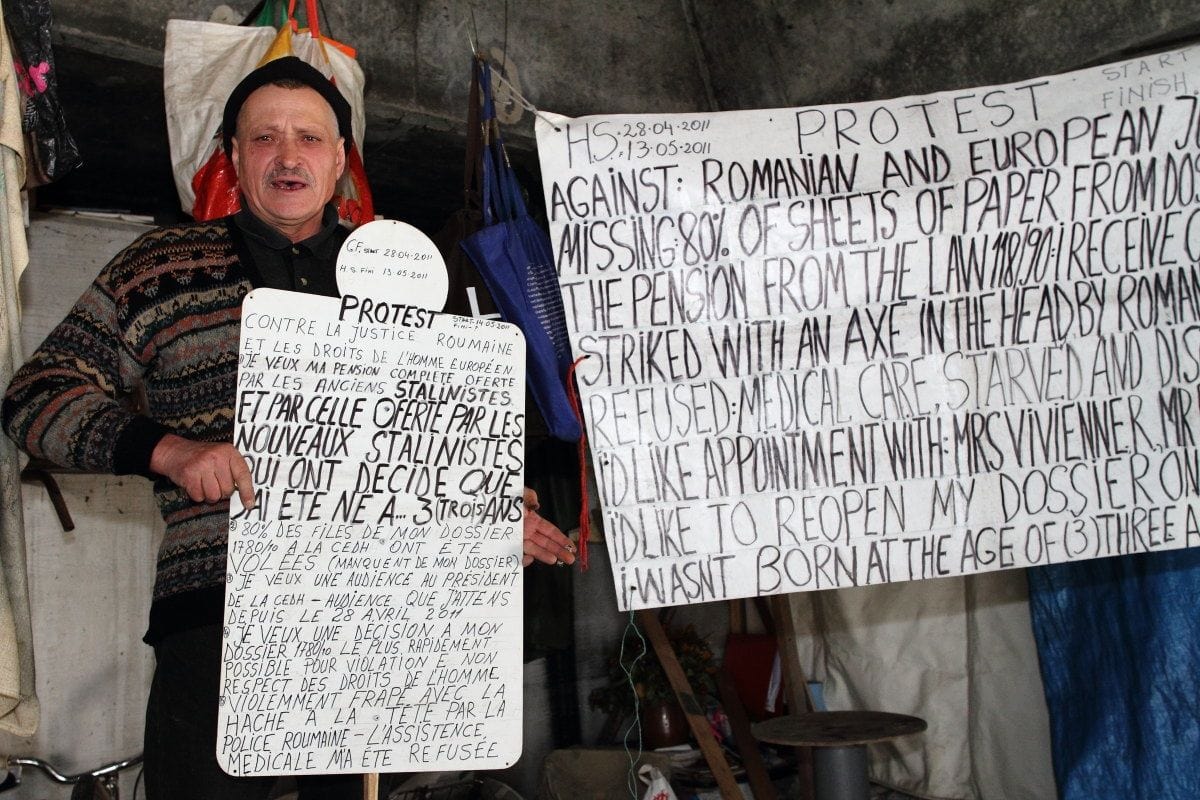 C.F. START 28.04.2011
H.S. FINI 13.05.2011
PROTEST
START.14.05.2011
FINI.
CONTRE LA JUSTICE ROUMAINE
ET LES DROITS DE L'HOMME EUROPÉEN
JE VEUX MA PENSION COMPLÈTE OFERTE
PAR LES ANCIENS STALINISTES.
ET PAR CELLE OFERTE PAR LES
NOUVEAUX STALINISTES
QUI ONT DECIDE QUE
J'AI ETE NE A... 3 (TROIS) ANS
80% DES FILES DE MON DOSSIER
1780/10 A LA CEDH ONT ETE
VOLÉES (MANQUENT DE MON DOSSIER)
JE VEUX UNE AUDIENCE AU PRÉSIDENT
DE LA CEDH - AUDIENCE QUE J'ATTENS
DEPUIS LE 28 AVRIL 2011
JE VEUX UNE DÉCISION A MON
DOSSIER 1780/10 LE PLUS RAPIDEMENT
POSSIBLE POUR VIOLATION E NON
RESPECT DES DROITS DE L'HOMME
VIOLEMMENT FRAPÉ AVEC LA
HACHE A LA TÊTE PAR LA
POLICE ROUMAINE - L'ASSISTENCE,
MEDICALE M'A ÉTÉ REFUSÉE
H.S. 28.04.2011
13.05.2011
PROTEST
START
FINISH
AGAINST: ROMANIAN AND EUROPEAN J
MISSING: 80% OF SHEETS OF PAPER FROM DOS
THE PENSION FROM THE LAW 118/90: I RECEIVE
STRIKED WITH AN AXE IN THE HEAD BY ROMAN
REFUSED: MEDICAL CARE, STARVED AND DIS
I'D LIKE APPOINTMENT WITH: MRS VIVIENNE R, MR
I'D LIKE TO REOPEN MY DOSSIER, ON
I WASNT BORN AT THE AGE OF (3) THREE